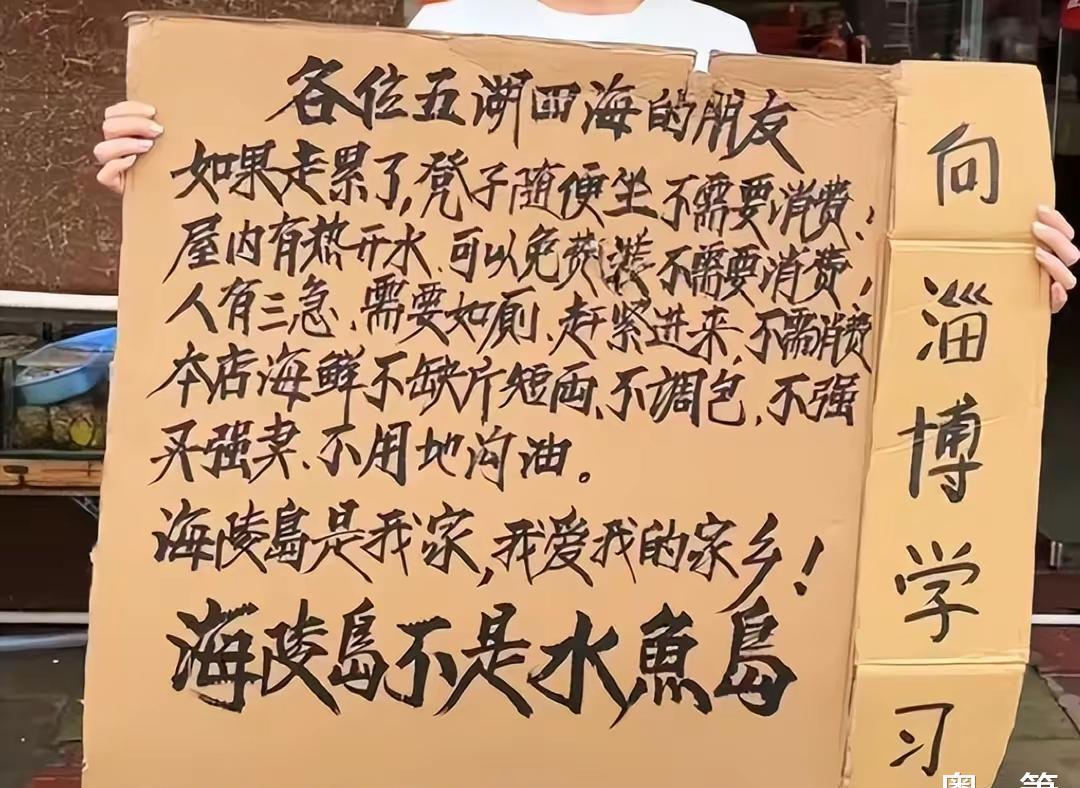 各位五湖四海的朋友
如果走累了,凳子随便坐不需要消费,
屋内有热开水.可以免费装不需要消费,
人有三急、需要如厠、赶紧进来、不需消费
本店海鲜不缺斤短両、不调包、不强
买强卖、不用地沟油。
海陵島是我家,我爱我的家乡!
海陵島不是水魚島
向淄博学习